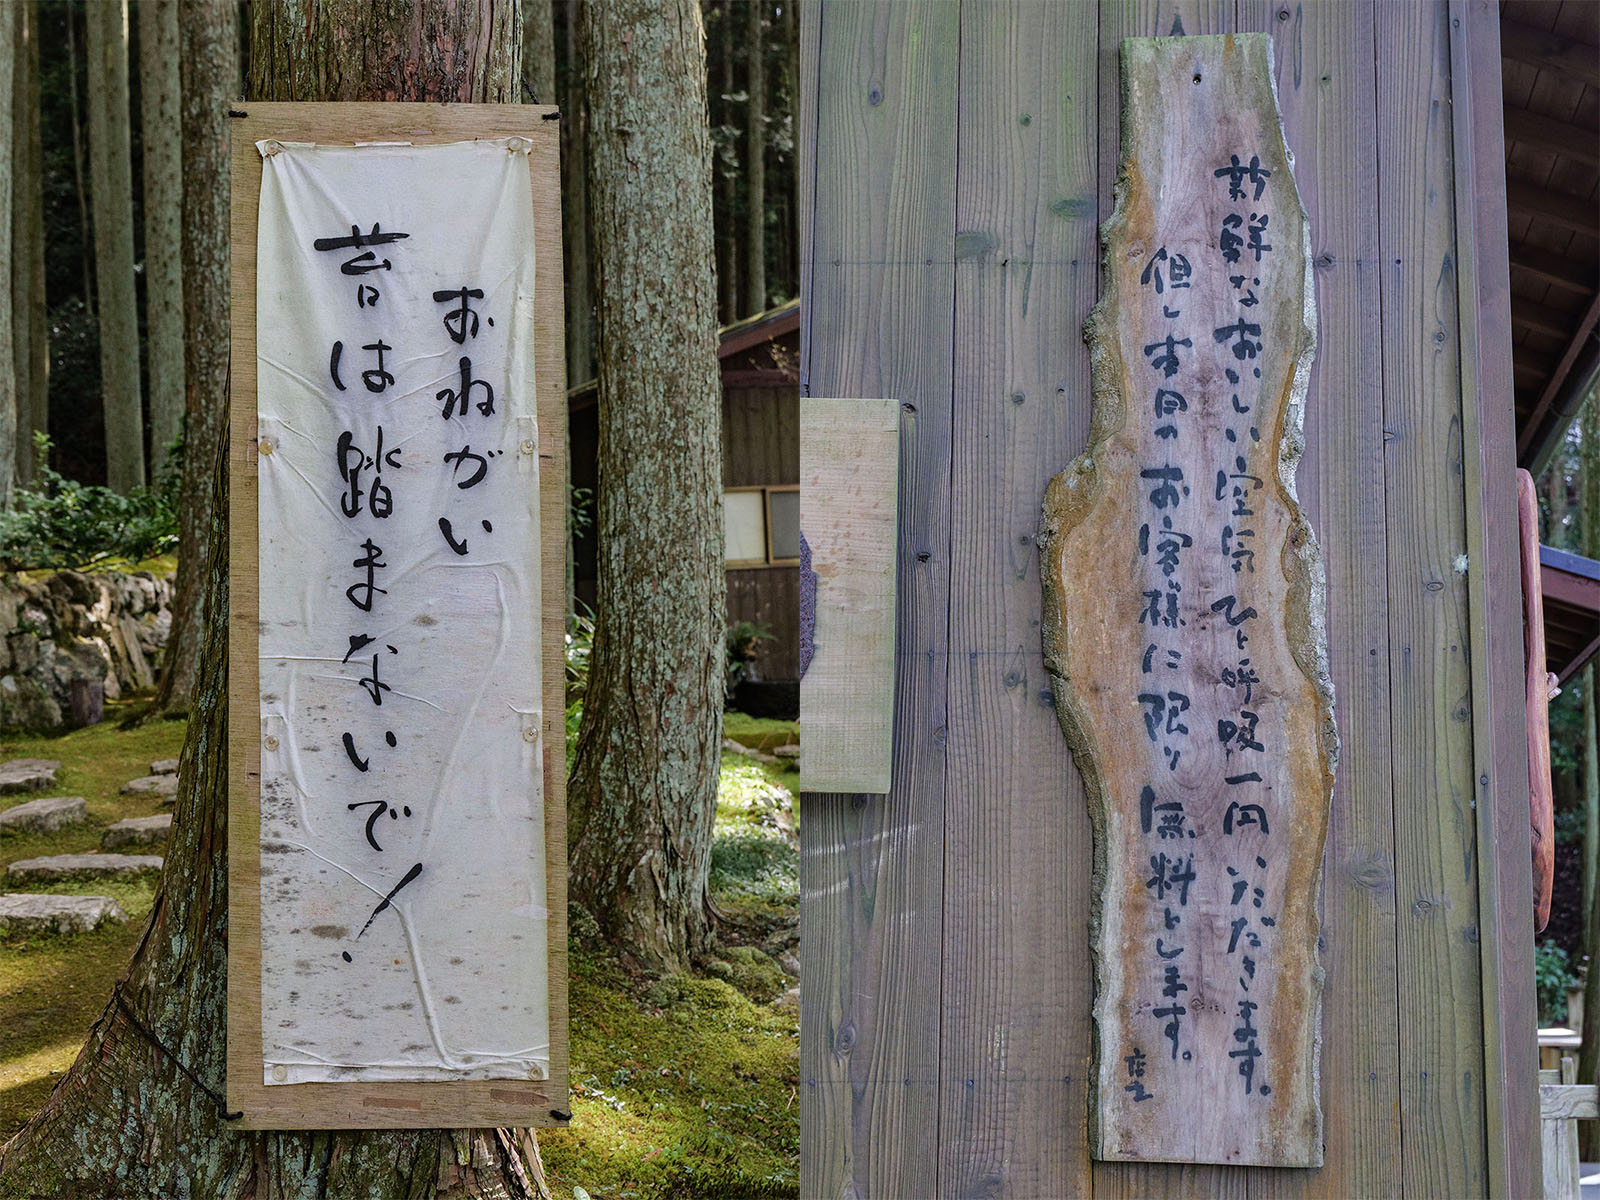 おねがい
苔は踏まないで!
新鮮なおいしい空気ひと呼吸一円いただきます。
但し本日のお客様に限り無料とします。
店主